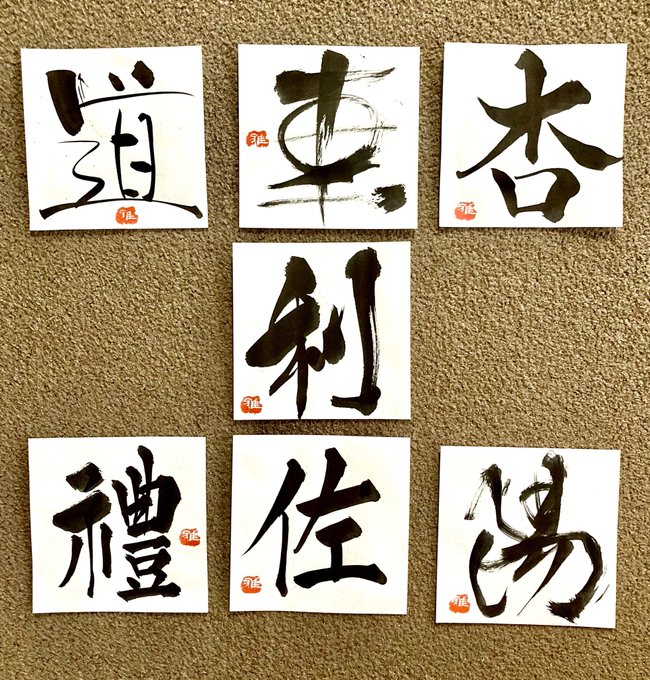 道 車 杏
利
禮 佐 湯